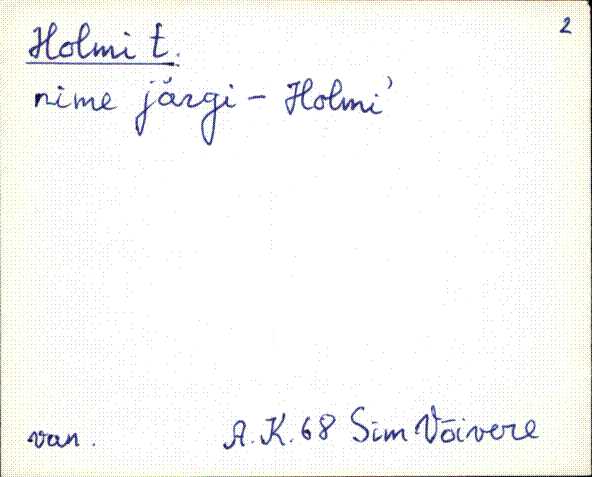 2
Holmi t.
nime järgi - Holmi'
van. A.K.68 Sim Võivere